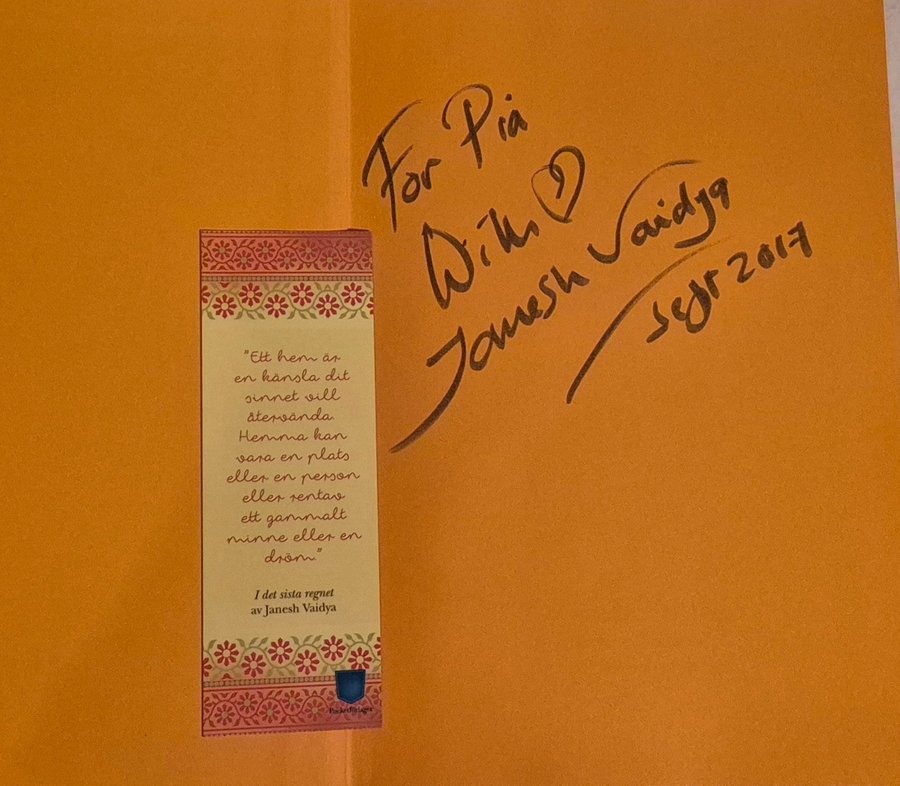 For Pia
With
Janesh Vaidya
Sept 2017
"Ett hem är
en känsla dit
sinnet vill
återvända.
Hemma kan
vara en plats
eller en person
eller rentav
ett gammalt
minne eller en
dröm."
I det sista regnet
av Janesh Vaidya
Pocketförlaget